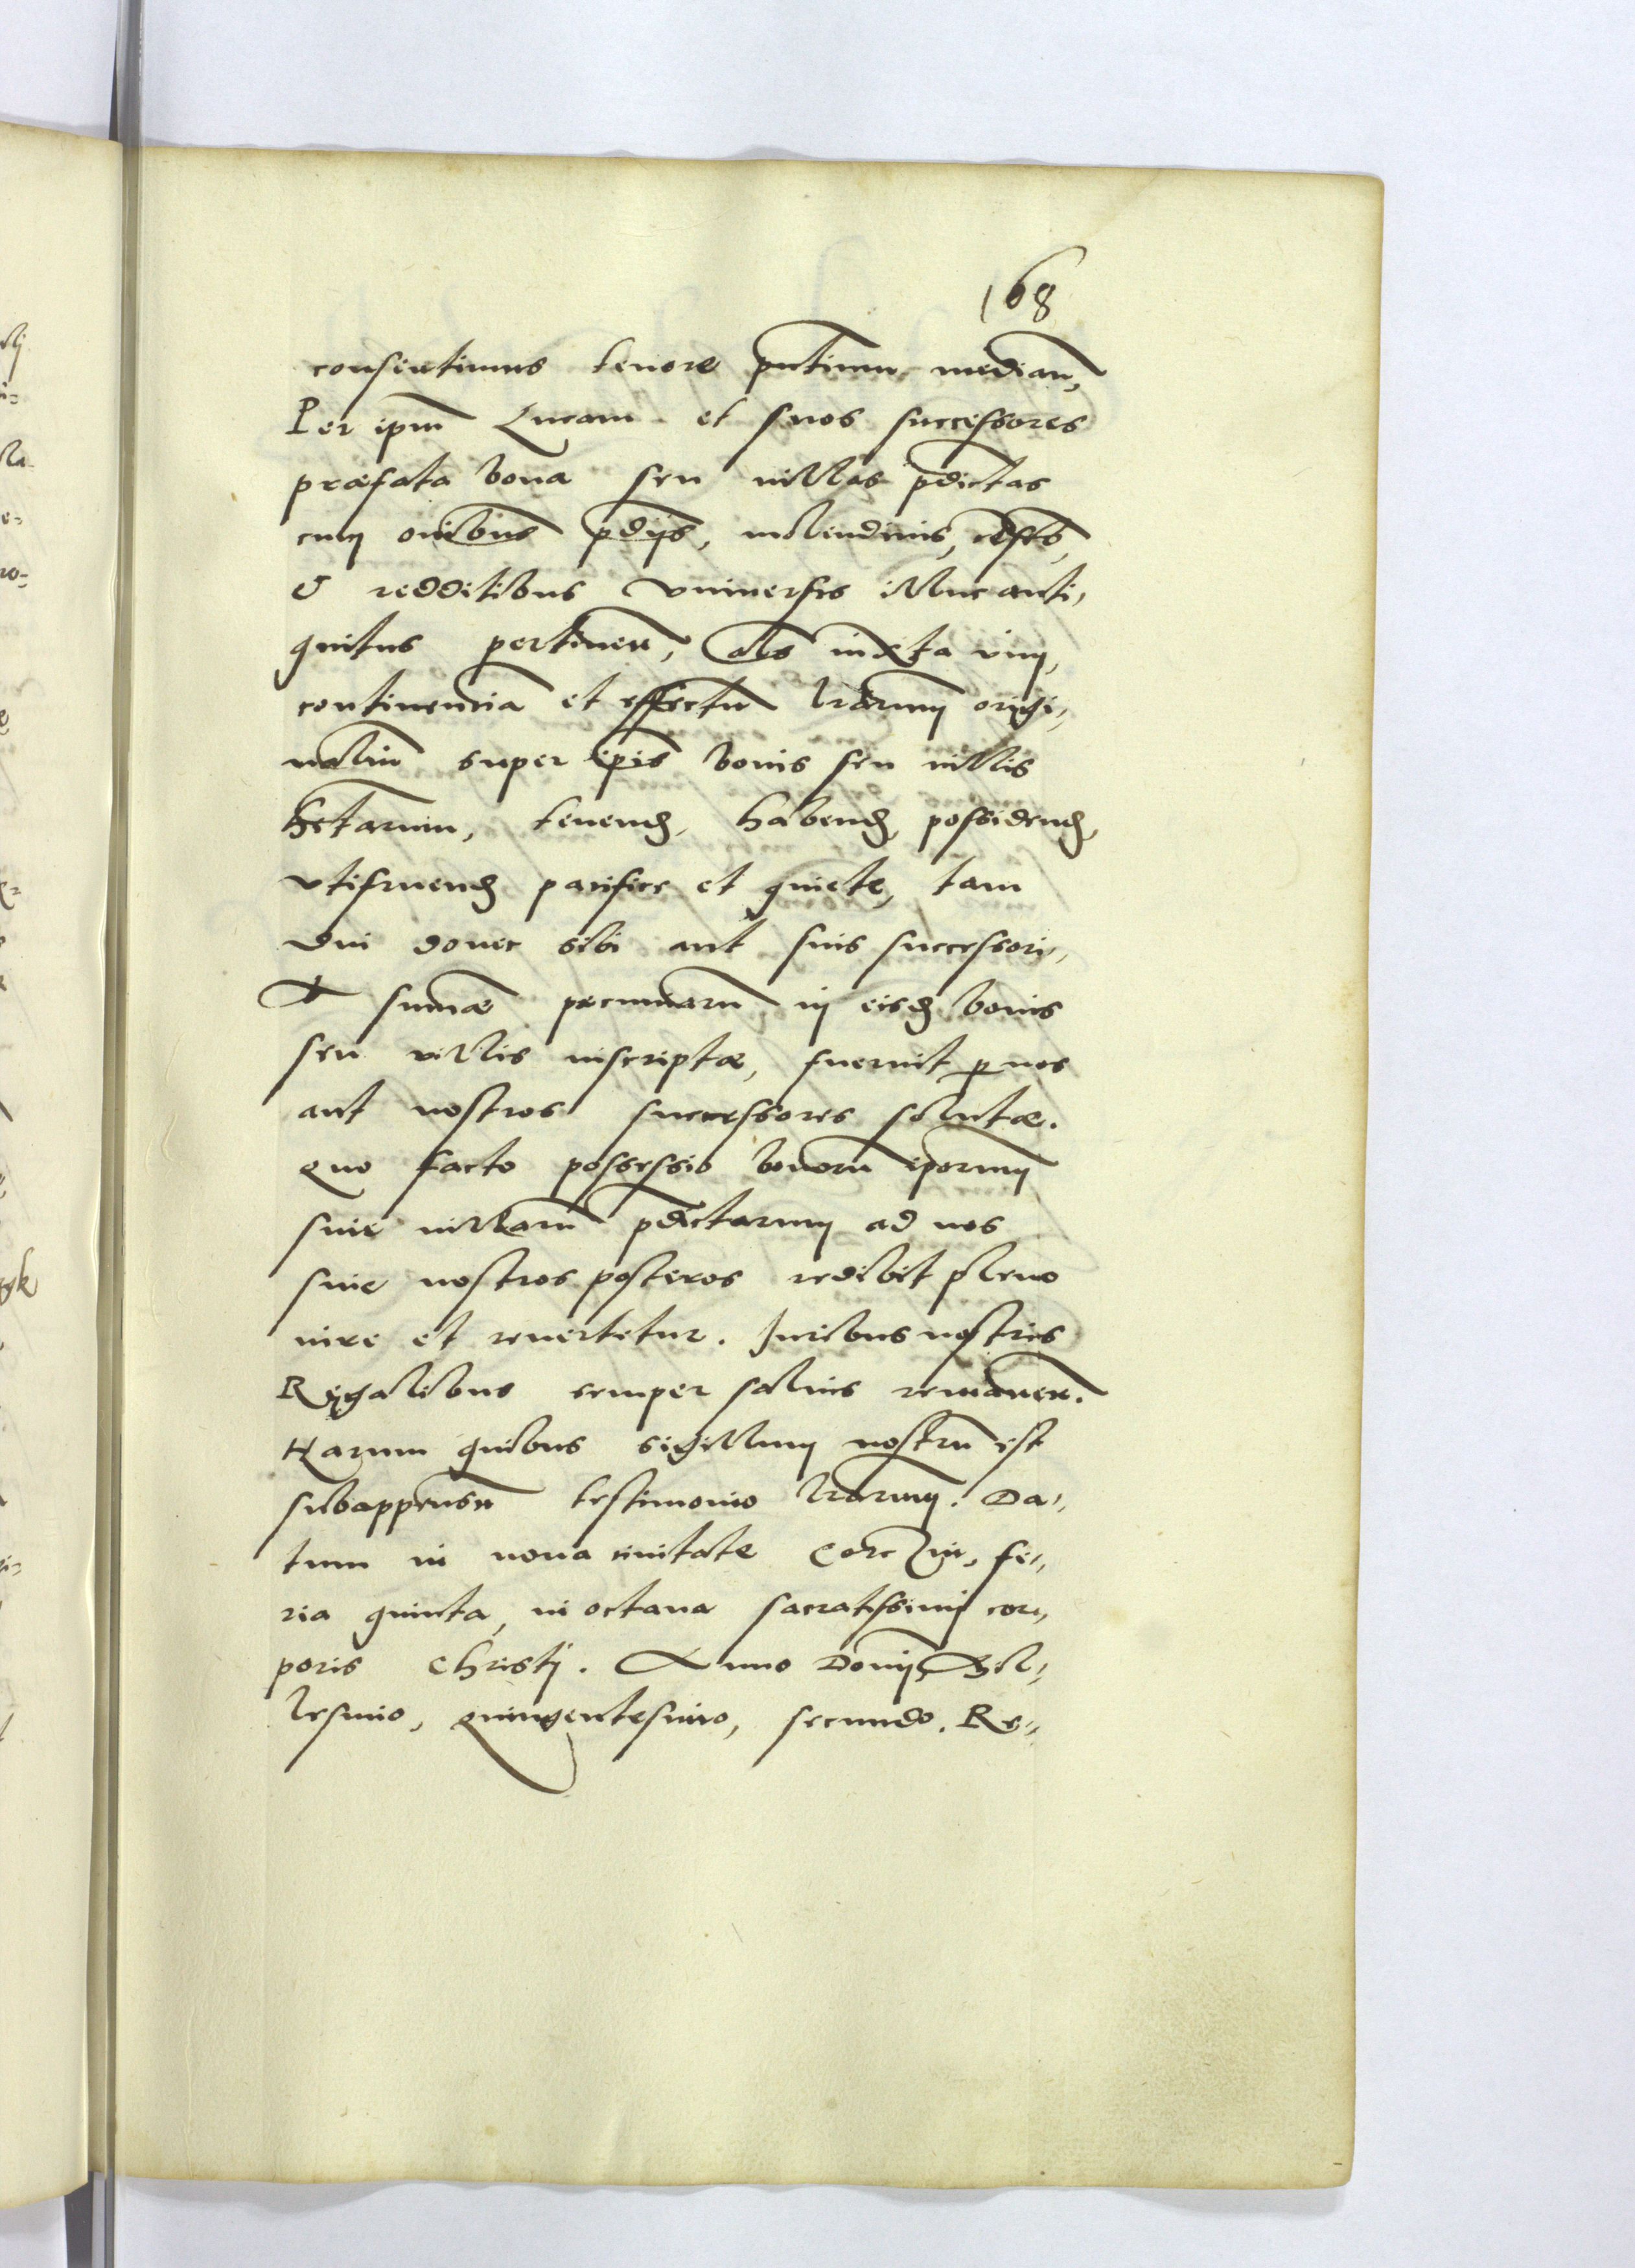 168
consentimus tenore pntium median,
Per ipm Lucam et suos successores
præfata bona seu villas pdictas
cum oibus pdijs, molendinis,
& redditibus vniuersis illuc anti,
quitus pertinen, als iuxta vim,
continencia et effectu lrarum origi,
naliu super ipis bonis seu villis
tenend, habend, possidend,
vtifruend pacifice et quiete, tam
diu donec sibi aut suis successori,
summæ pecuniaru in eisd bonis
seu villis inscriptæ, fuerint p nos
aut nostros successores solutæ.
Quo facto possessio bonoru ipsorum
siue villaru pdictarum ad nos
siue nostros posteros redibit pleno
iure et reuertetur. Juribus nostris
Regalibus semper saluis remanen.
Harum quibus sigillum nostru est
subappensu testimonio lrarum. Da,
tum in noua ciuitate Corczin, fe,
ria quinta, in octaua sacratissimi cor,
poris Christi. Anno Domini Mil,
lesimo, quingentesimo, secundo. Re,